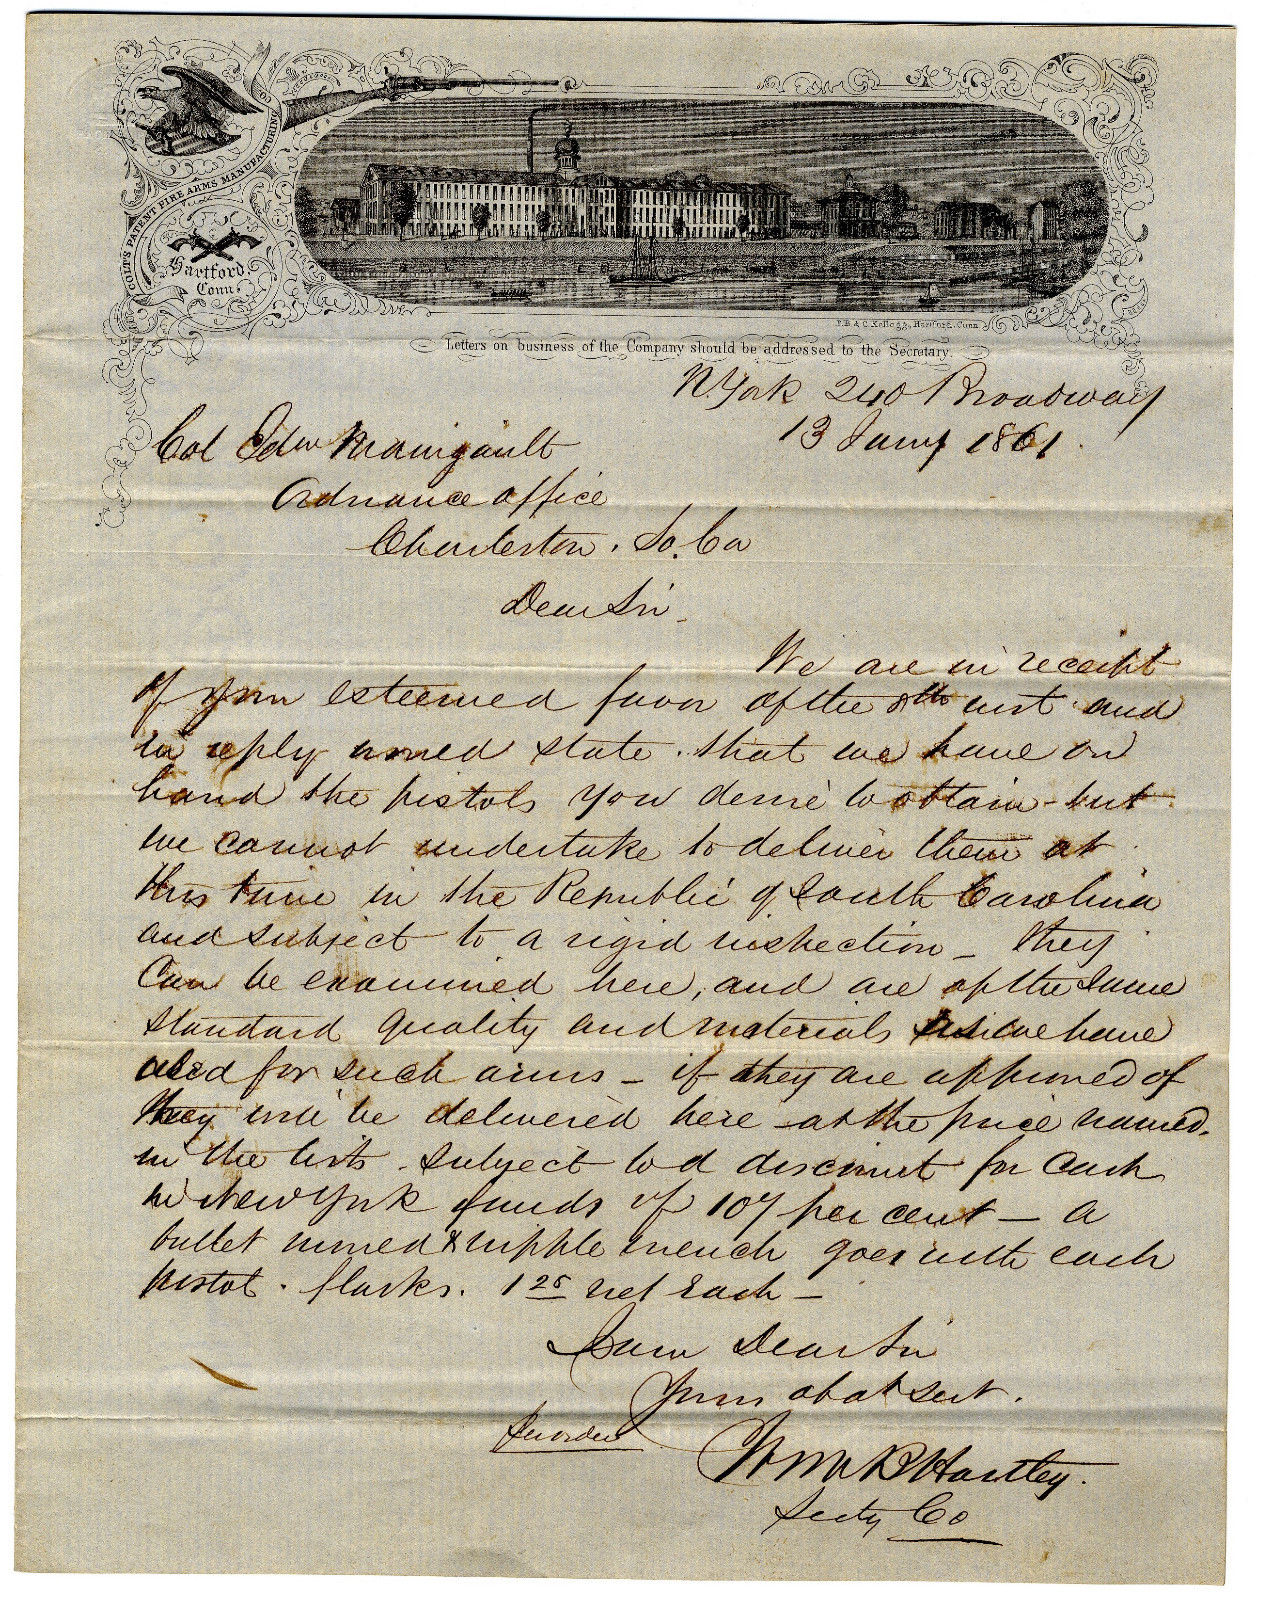 COLT'S PATENT FIRE ARMS MANUFACTURING CO
Hartford,
Conn.
E.B. & C. Kellogg, Hartford, Conn
Letters on business of the Company should be addressed to the Secretary.
N. York 240 Broadway
13 Jany 1861.
Col Edw Manigault
Ordnance office
Charleston. So. Ca
Dear Sir
We are in receipt
of your esteemed favor of the 8th inst and
in reply would state. that we have on
hand the pistols you desire to obtain - but
we cannot undertake to deliver them at
this time in the Republic of South Carolina
and subject to a rigid inspection - They
Can be examined here, and are of the Same
standard quality and materials as we have
used for such arms - if they are approved of
they will be delivered here - at the price named
in the lists. subject to a discount for Cash
in New York funds of 10% per cent - a
bullet mould & nipple wrench goes with each
pistol. flasks. 1 25 net Each -
I am Dear Sir
Your obdt Servt.
Wm B Hartley.
Secty Co